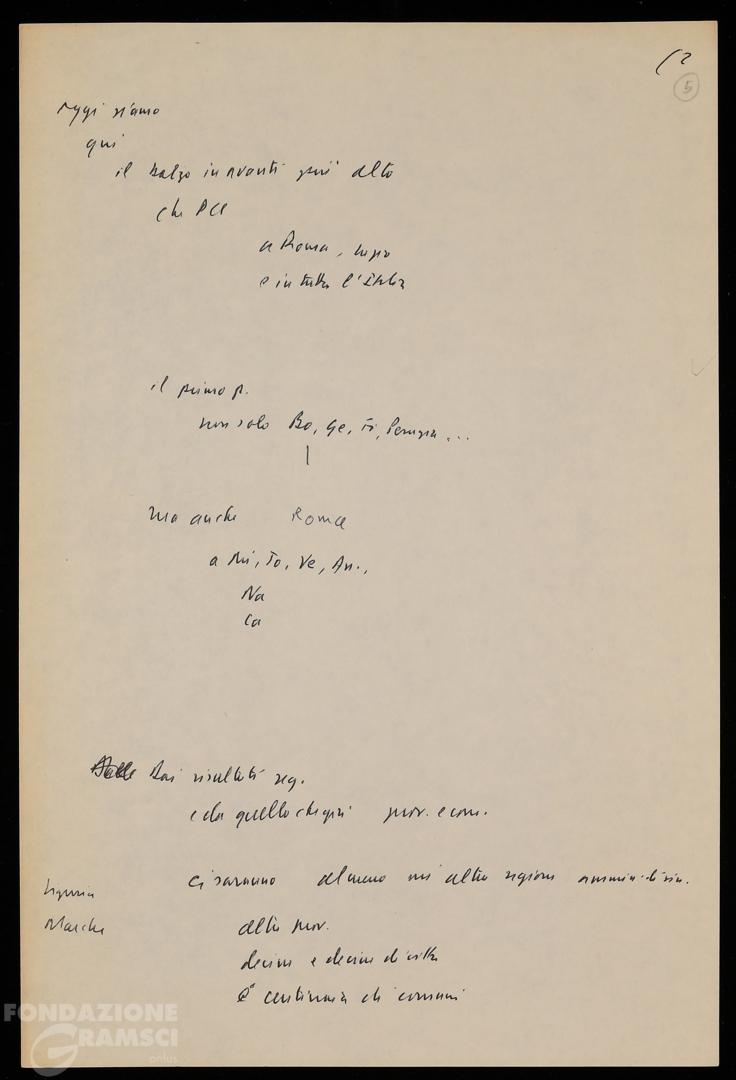 (2
5
Oggi siamo
qui
il balzo in avanti più alto
che PCI
a Roma,
e in tutta l'Italia
il primo p.
non solo Bo, Ge, Fi, Perugia ...
ma anche Roma
a Mi, To, Ve, An.,
Na
Ca
Dalle Dai risultati reg.
e da quello che già prov. e com.
ci saranno almeno altre regioni ammin. di sin.
Liguria
Marche
altre prov.
decine e decine di città
e centinaia di comuni
FONDAZIONE
GRAMSCI
onlus